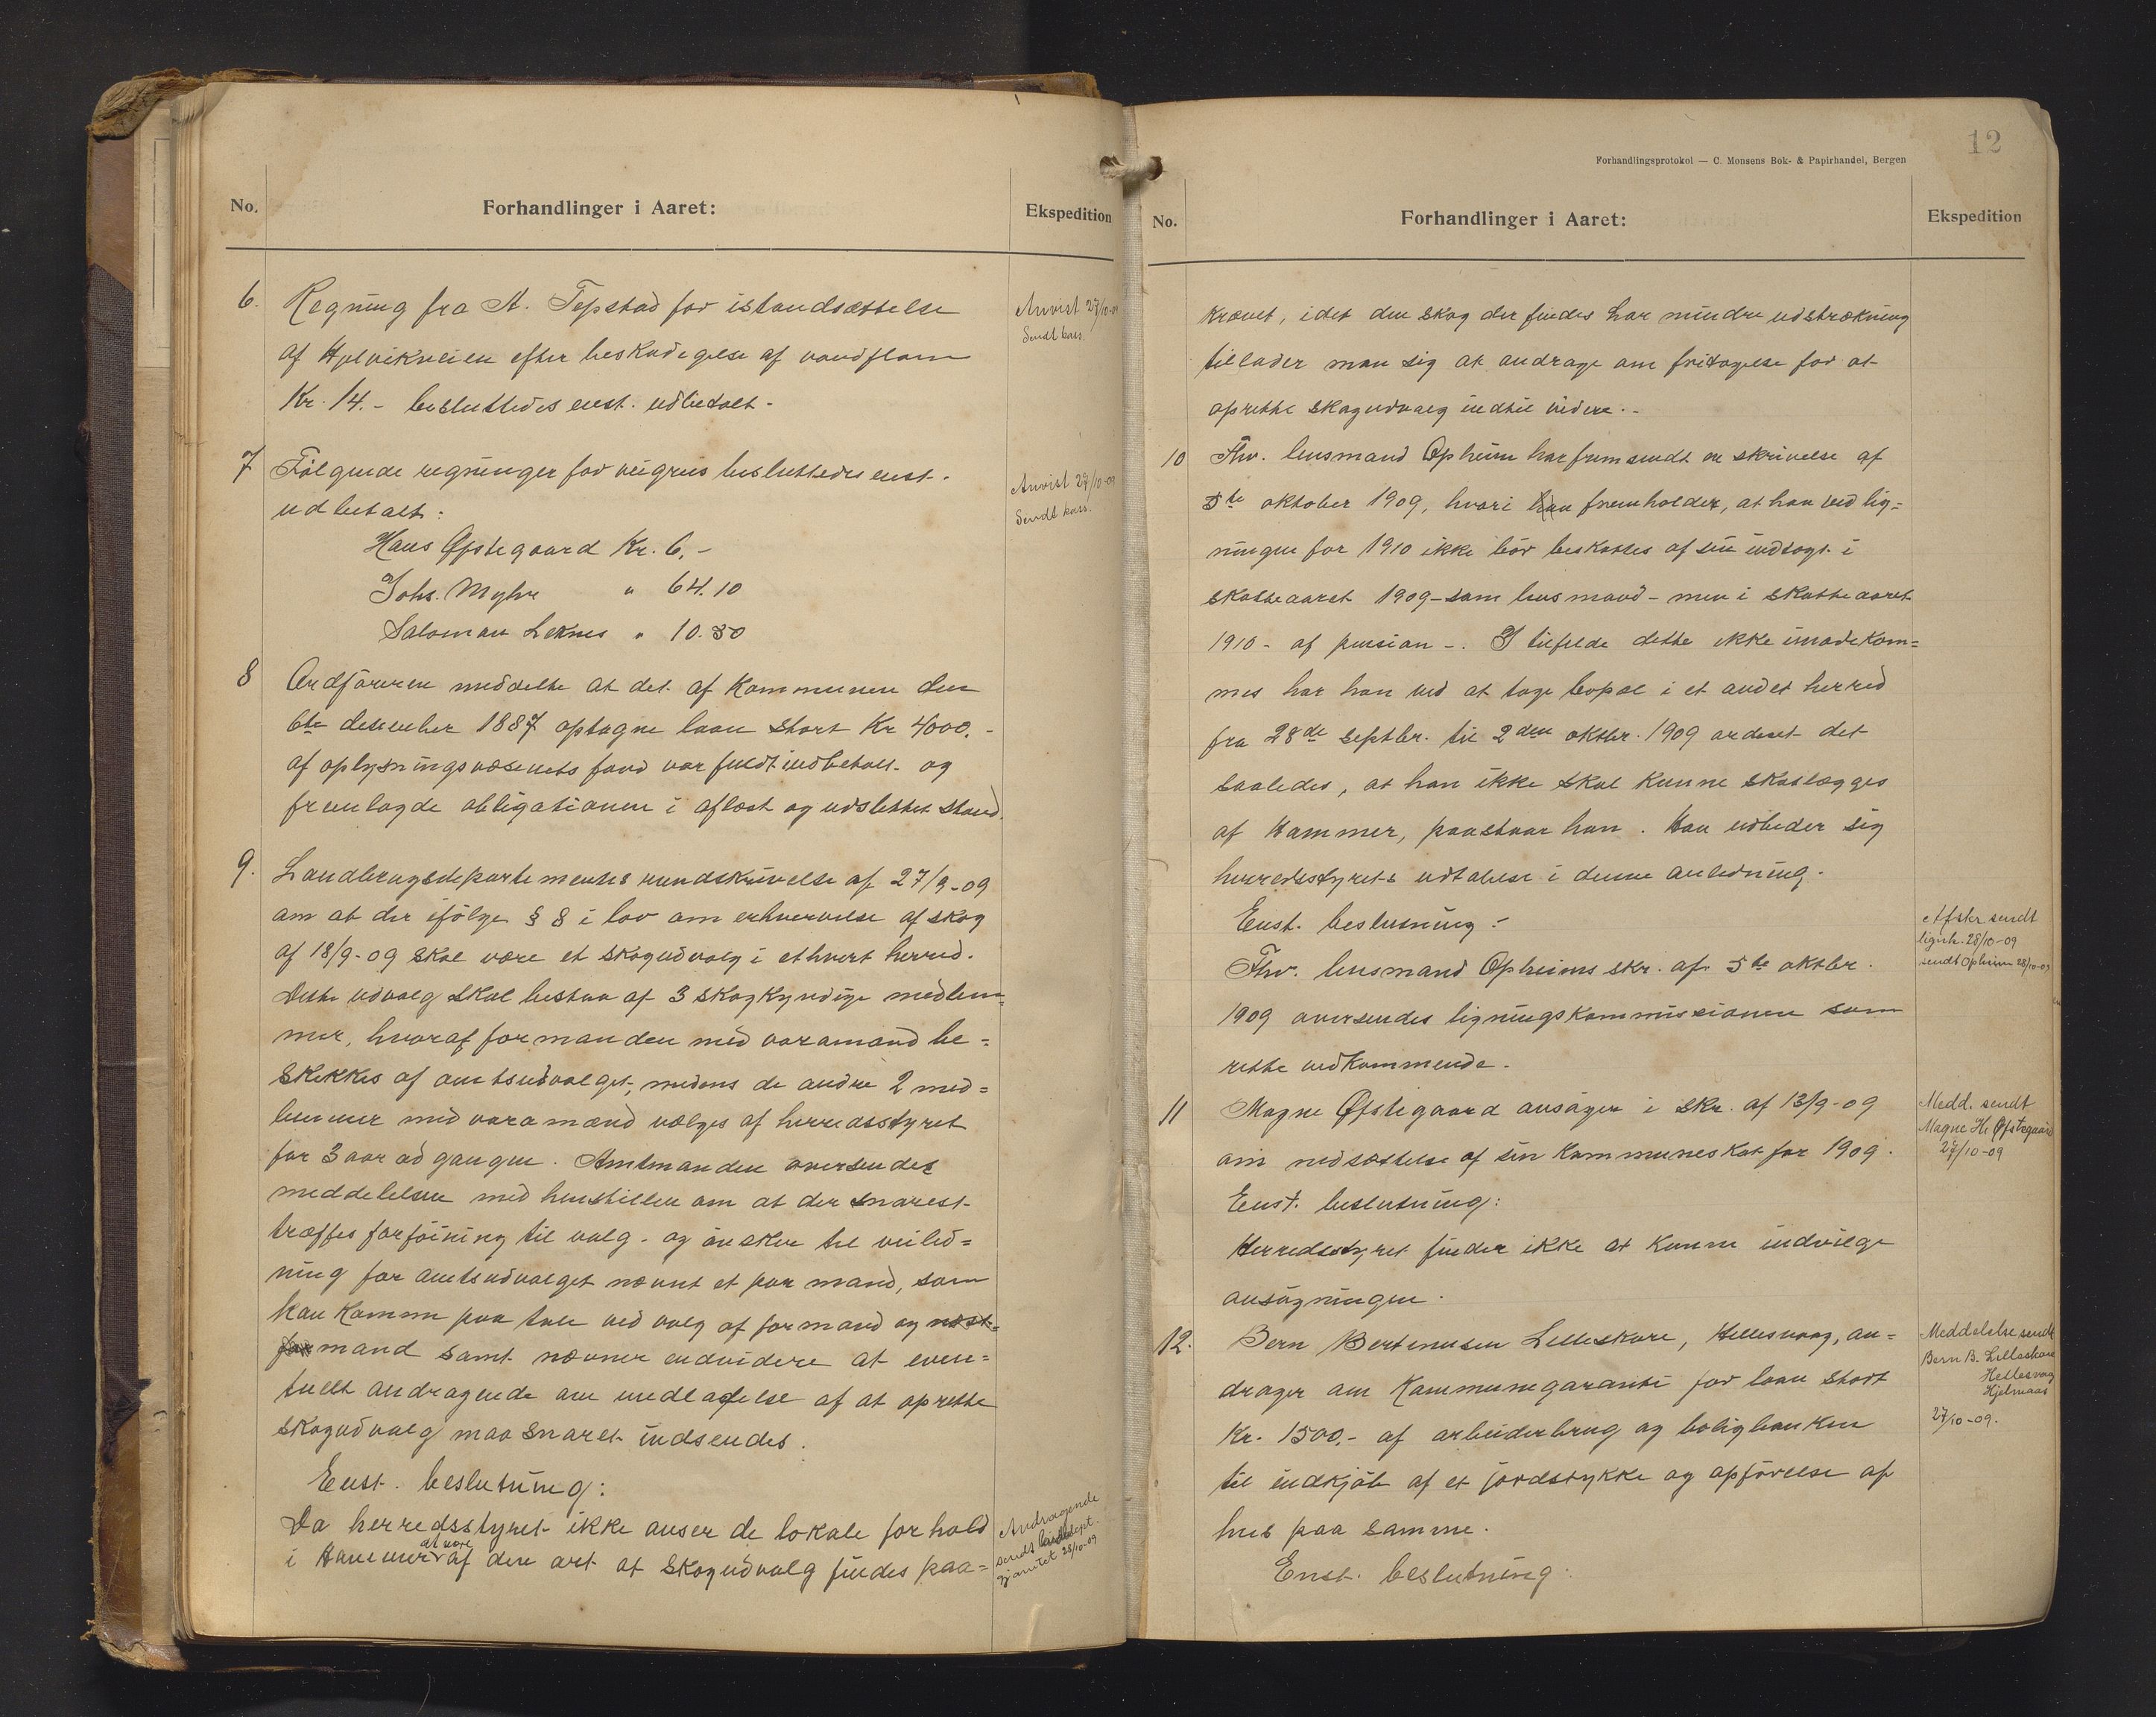 No.
Forhandlinger i Aaret:
Ekspedition
6.
Regning fra A. Tepstad for istandsættelse
af Hjelvikveien efter beskadigelse af vandflom
Kr. 14.- besluttedes enst. udbetalt.
Anvist 27/10-09
Sendt kass.
7
Følgende regninger for veigrus besluttedes enst.
udbetalt:
Hans Øfstegaard Kr. 6,-
Johs. Myhre " 64.10
Salomon Leknes " 10.80
Anvist 27/10-09
Sendt kass.
8
Ordføreren meddelte at det af Kommunen den
6te desember 1887 optagne laan stort Kr 4000.-
af oplysningsvæsenets fond var fuldt indbetalt og
fremlagde obligationen i aflæst og udslettet stand.
9.
Landbrugsdepartementets rundskrivelse af 27/9-09
om at der ifølge § 8 i lov om erhvervelse af skog
af 18/9-09 skal være et skogudvalg i ethvert herred.
Dette udvalg skal bestaa af 3 skogkyndige medlem=
mer, hvoraf formanden med varamand be=
skikkes af amtsudvalget, medens de andre 2 med=
lemmer med varamænd vælges af herredsstyret
for 3 aar ad gangen. Amtmanden oversender
meddelelsen med henstillen om at der snarest
træffes forføining til valg - og ønsker til veiled=
ning for amtsudvalget nævnt et par mænd, som
kan komme paa tale ved valg af formand og næst=
formand samt nævner endvidere at even=
tuelt andragende om undladelse af at oprette
skogudvalg maa snarest indsendes.
Enst. beslutning:
Da herredsstyret ikke anser de lokale forhold
i Hammer at være af den art at skogudvalg findes paa=
Andragende
sendt landbdept.
gj amtet 28/10-09
12
Forhandlingsprotokol — C. Monsens Bok- & Papirhandel, Bergen
No.
Forhandlinger i Aaret:
Ekspedition
krævet, idet den skog der findes har mindre udstrækning
tillader man sig at andrage om fritagelse for at
oprette skogudvalg indtil videre.-
10
Fhv. lensmand Opheim har fremsendt en skrivelse af
5te oktober 1909, hvori han fremholder, at han ved lig=
ningen for 1910 ikke bør beskattes af sin indtægt i
skatteaaret 1909 - som lensmand - men i skatteaaret
1910 - af pension -. I tilfelde dette ikke imødekom=
mes har han ved at tage bopæl i et andet herred
fra 28de septbr. til 2den oktbr. 1909 ordnet det
saaledes, at han ikke skal kunne skatlægges
af Hammer, paastaar han. Han udbeder sig
herredsstyrets udtalelse i denne anledning.
Enst. beslutning:
Fhv. lensmand Opheims skr. af 5te oktbr.
1909 oversendes ligningskommissionen som
rette vedkommende.
Afskr. sendt
lignk. 28/10-09
sendt Opheim 28/10-09
11
Magne Øfstegaard ansøger i skr. af 13/9-09
om nedsættelse af sin kommuneskat for 1909.
Enst. beslutning:
Herredsstyret finder ikke at kunne indvilge
ansøgningen.
Medd. sendt
Magne H. Øfstegaard
27/10-09
12.
Bern Bertinusen Lilleskare, Hellesvaag, an=
drager om kommunegaranti for laan stort
Kr. 1500,- af arbeiderbrug og boligbanken
til indkjøb af et jordstykke og opførelse af
hus paa samme.
Enst. beslutning:
Meddelelse sendt
Bern B. Lilleskare
Hellesvag
Hjelmaas
27/10-09.